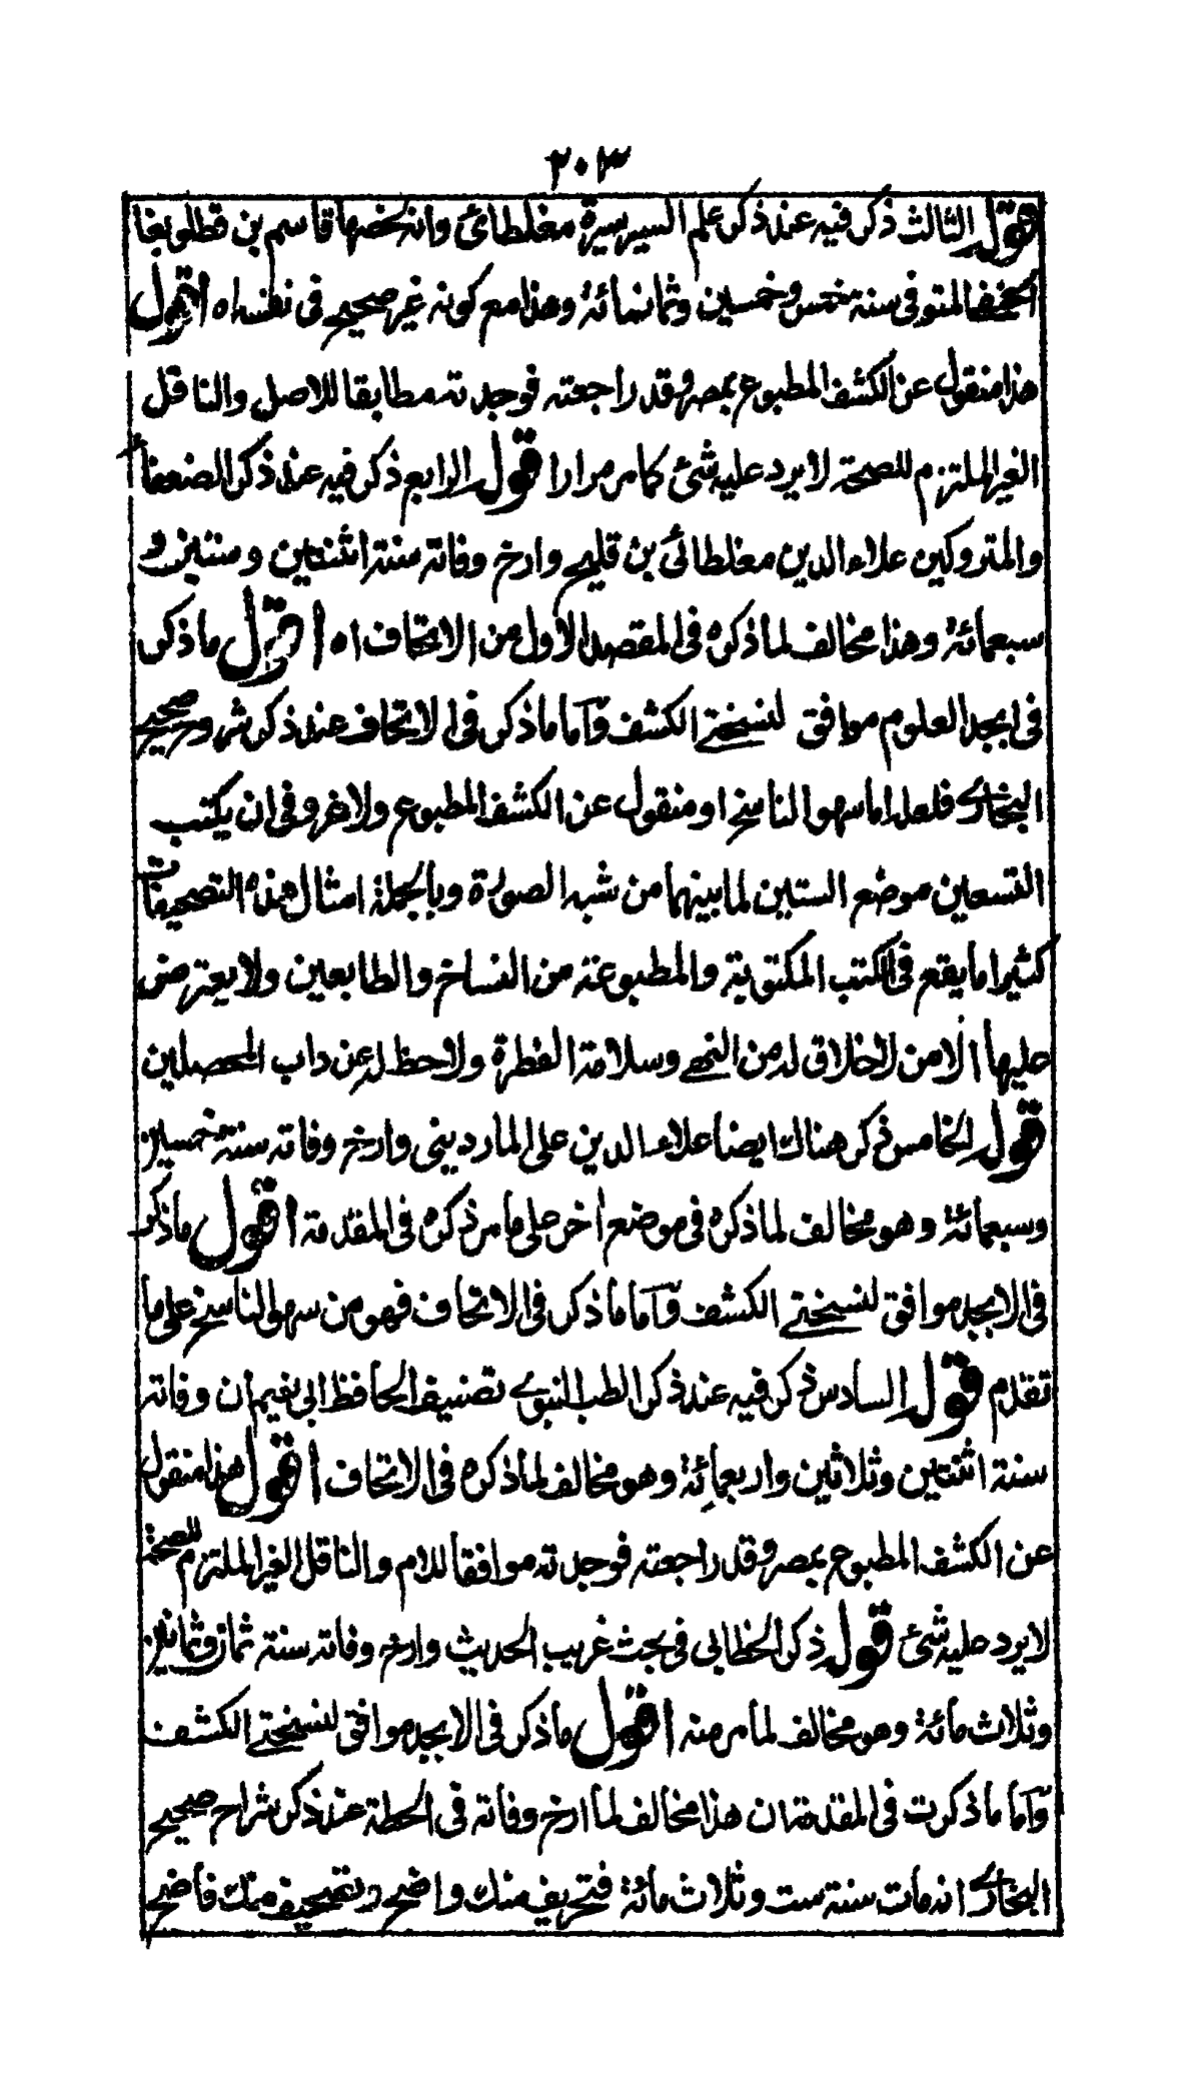 ٢٠٣
قوله الثالث ذكر فيه عند ذكر علم السير سيرة مغلطائ وانه لخصها قاسم بن قطلوبغا
الحنفي المتوفى سنة خمس وخمسين وثمانمائة وهذا مع كونه غير صحيح فى نفسه اه اقول
هذا منقول عن الكشف المطبوع بمصر وقد راجعته فوجدته مطابقا للاصل والناقل
الغير الملتزم للصحة لا يرد عليه شئ كما مر مرارا قوله الرابع ذكر فيه عند ذكر الضعفاء
والمتروكين علاء الدين مغلطائى بن قليج وارخ وفاته سنة اثنتين وستين و
سبعمائة وهذا مخالف لما ذكره فى المقصد الاول من الاتحاف اه اقول ما ذكر
فى ابجد العلوم موافق لنسختے الكشف وآما ما ذكر فى الاتحاف عند ذكر شروح صحيح
البخارے فلعله اما سهو الناسخ او منقول عن الكشف المطبوع ولا غرو فى ان يكتب
التسعين موضع الستين لما بينهما من شبه الصورة وبالجملة امثال هذه التصحيفات
كثيرا ما يقع فى الكتب المكتوبة والمطبوعة من النساخ والطابعين ولا يعترض
عليها الا من لا خلاق له من النهے وسلامة الفطرة ولا حظ له عن داب المحصلين
قوله الخامس ذكر هناك ايضا علاء الدين على الماردينى وارخ وفاته سنة خمسين
وسبعمائة وهو مخالف لما ذكره فى موضع اخر على ما مر ذكره فى المقدمة اقول ما ذكر
فى الابجد موافق لنسختے الكشف وآما ما ذكر فى الاتحاف فهو من سهو الناسخ على ما
تقدم قوله السادس ذكر فيه عند ذكر الطب النبوے تصنيف الحافظ ابى نعيم ان وفاته
سنة اثنتين وثلاثين واربعمائة وهو مخالف لما ذكره فى الاتحاف اقول هذا منقول
عن الكشف المطبوع بمصر وقد راجعته فوجدته موافقا للام والناقل الغير الملتزم للصحة
لا يرد عليه شئ قوله ذكر الخطابى فى بحث غريب الحديث وارخ وفاته سنة ثمان وثمانين
وثلاث مائة وهو مخالف لما مر منه اقول ما ذكر فى الابجد موافق لنسختے الكشف
وآما ما ذكرت فى المقدمة ان هذا مخالف لما ارخ وفاته فى الحطة عند ذكر شراح صحيح
البخارے انه مات سنة ست وثلاث مائة فتحريف منك واضح وتصحيف منك فاضح